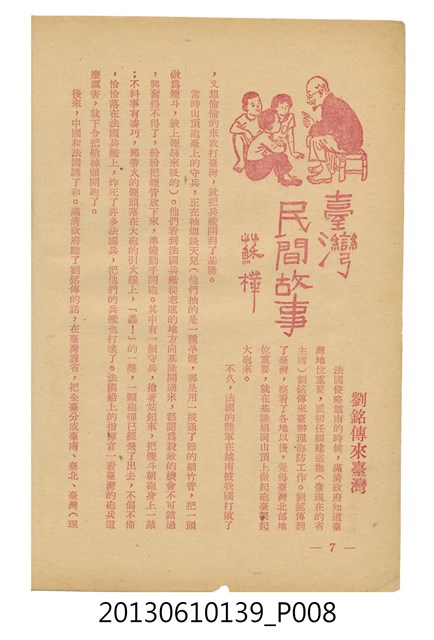 臺灣
民間故事
蘇樺
劉銘傳來臺灣
法國侵略越南的時候，滿清政府知道臺
灣地位重要，派初任福建巡撫（像現在的省
主席）劉銘傳來臺辦理海防工作。劉銘傳到
了臺灣，察看了各地以後，覺得臺灣北部地
位重要，就在基隆
山頂上做起砲臺，
起
大砲來。
不久，法國的陸軍在越南被我國打敗了
，又想偷偷的來攻打臺灣，就把兵艦開到了基隆。
當時山頂砲臺上的守兵，正在抽烟談天兒（他們抽的是一種旱煙，都是用一根通了節的細竹管，把一頭
做為煙斗，裝上煙絲來吸的）。他們看到法國兵艦從老遠的地方向基隆開過來，都認為殺敵的機會不可錯過
，興奮得不得了，紛紛把煙管放下來，準備動手開砲。其中有一個守兵，拾著站起來，把煙斗朝砲身上一敲
；不料事有湊巧，那帶火的煙頭落在大砲的引火線上，「轟！」的一聲，一顆砲彈已經飛了出去，不偏不倚
，恰恰落在法國兵艦上，炸死了許多法國兵，把他們的兵艦也打壞了。法國船上的指揮官一看臺灣的砲兵這
麼厲害，就下令把船掉頭開跑了。
後來，中國和法國講了和。滿清政府聽了劉銘傳的話，在臺灣設省，把全臺分成臺南、臺北、臺灣（現
— 7 —
20130610139_P008